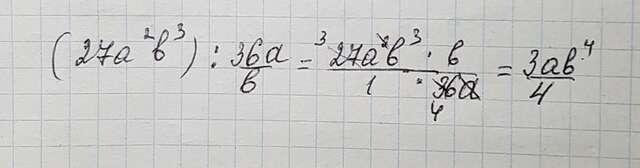 (27a²b³) : 36a/b = ³27a²b³ · b / 1 · 36a 4 = 3ab⁴/4